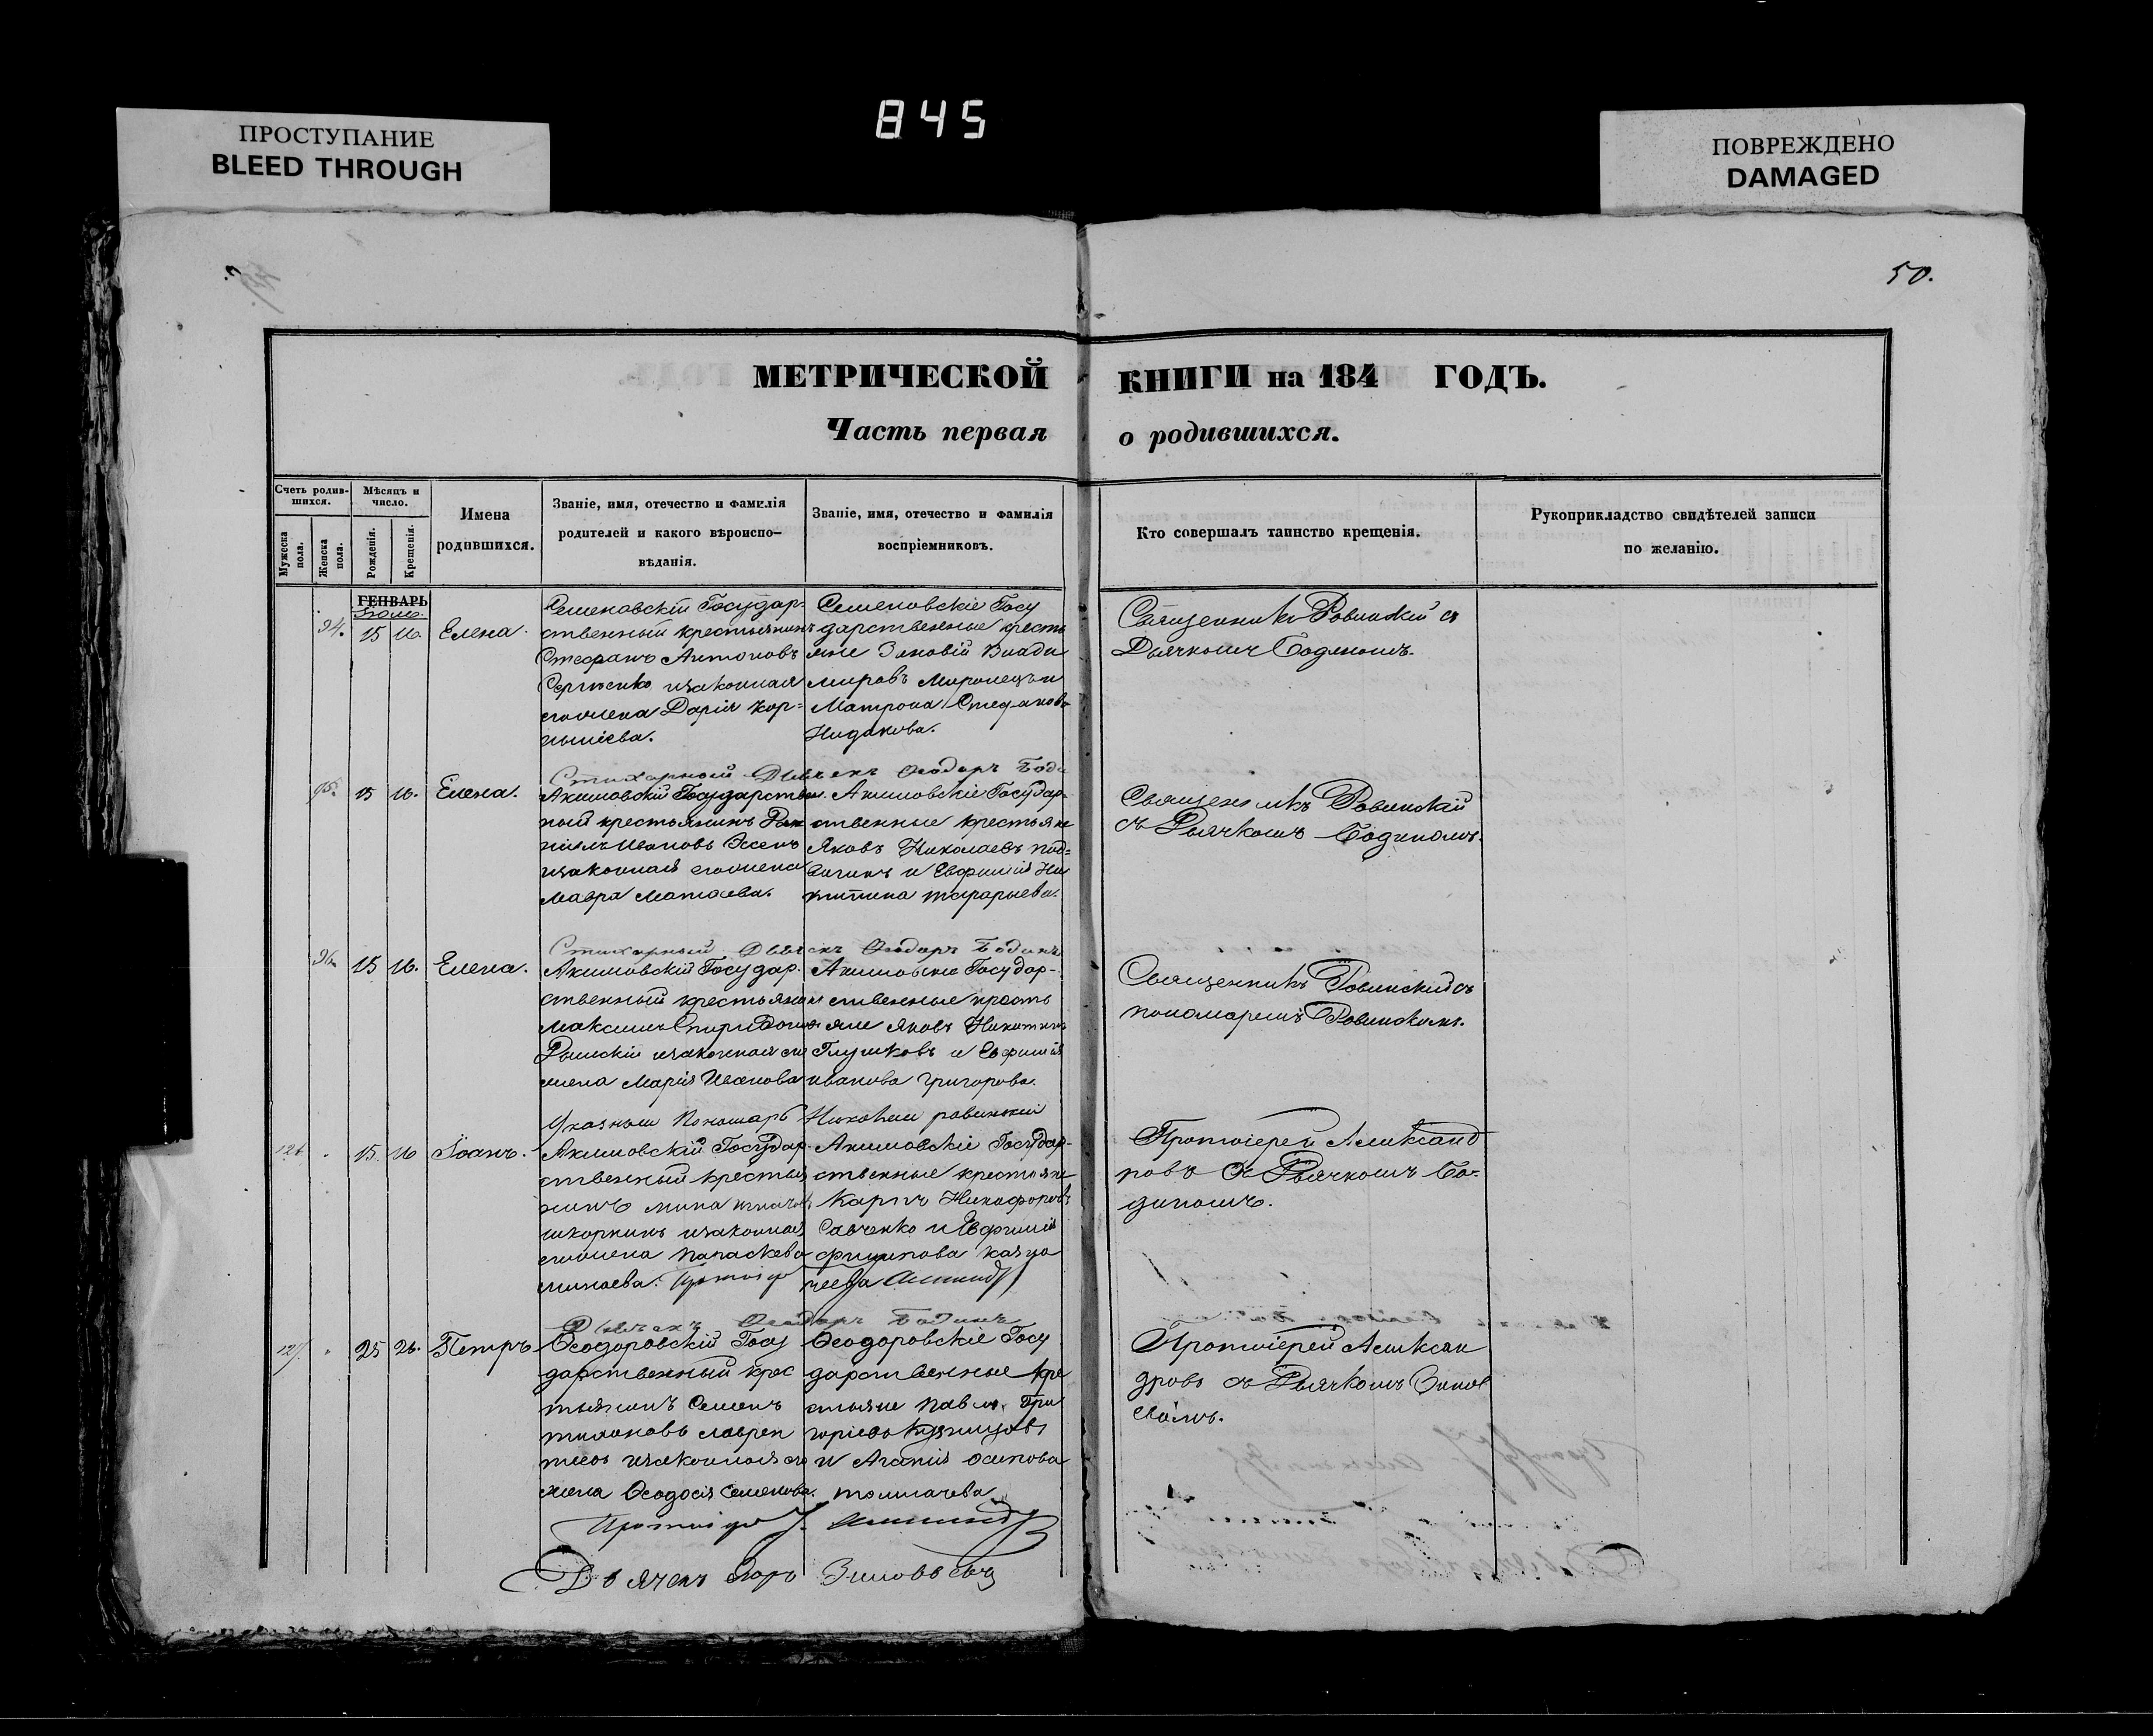 845
ПРОСТУПАНИЕ
BLEED THROUGH
ПОВРЕЖДЕНО
DAMAGED
50.
МЕТРИЧЕСКОЙ КНИГИ на 184 ГОДЪ.
Часть первая о родившихся.
Счетъ родив-
шихся.
Мужеска пола.
Женска пола.
Мѣсяцъ и
число.
Рожденія.
Крещенія.
Имена
родившихся.
Званіе, имя, отечество и фамилія
родителей и какого вѣроиспо-
вѣданія.
Званіе, имя, отечество и фамилія
воспріемниковъ.
Кто совершалъ таинство крещенія.
Рукоприкладство свидѣтелей записи
по желанію.
ГЕНВАРЬ
94. 15 16. Елена.
Семеновскій Государ-
ственный крестьянинъ
Стефанъ Антоновъ
Сергѣенко изаконная
егожена Дарія Кор-
Семеновскіе Госу
дарственные кресть
яне Зиновій Влади
мировъ Миронецъ и
Матрона Стефанова
Священникъ Ровинскій съ
Дьячкомъ Бодиномъ.
Стихарный Дьячекъ Ѳеодоръ Боди
95. 15 16. Елена.
Акимовскій Государствен.
ный крестьянинъ
Ивановъ
изаконная егожена
Мавра Матѳева.
Акимовскіе Государ-
ственные крестьяне
Яковъ Николаевъ
и Евфимія Ни
китина
Священникъ Ровинскій
съ Дьячкомъ Бодиномъ.
Стихарный Дьячекъ Ѳеодоръ Бодинъ
96. 15 16. Елена.
Акимовскій Государ-
ственный крестьянинъ
Максимъ Спиридоновъ
изаконная его
жена Марія Иванова
Акимовскіе Государ-
ственные кресть
яне Яковъ Никитинъ
Глушковъ и Евфимія
Иванова Григорова.
Священникъ Ровинскій съ
пономаремъ Ровинскимъ.
Указный Пономарь Николай Ровинскій
126. 15. 16 Іоаннъ.
Акимовскій Государ-
ственный крестья
нинъ
изаконная
егожена Параскева
Минаева.
Акимовскіе Государ-
ственные крестьяне
Карпъ Никифоровъ
Савченко и Евфимія
Филипова
Протоіерей Александ
ровъ съ Дьячкомъ Бо-
диномъ.
Дьячекъ Ѳеодоръ Бодинъ
127. 25 26. Петръ
Ѳеодоровскій Госу
дарственный крес
тьянинъ Семенъ
изаконная его
жена Ѳеодосія Семенова.
Ѳеодоровскіе Госу
дарственные кре
стьяне Павелъ Гри
горіевъ Кузнецовъ
и Агаѳія Осипова
толмачева
Протоіерей Алексан
дровъ съ Дьячкомъ Зинов
Дьячекъ